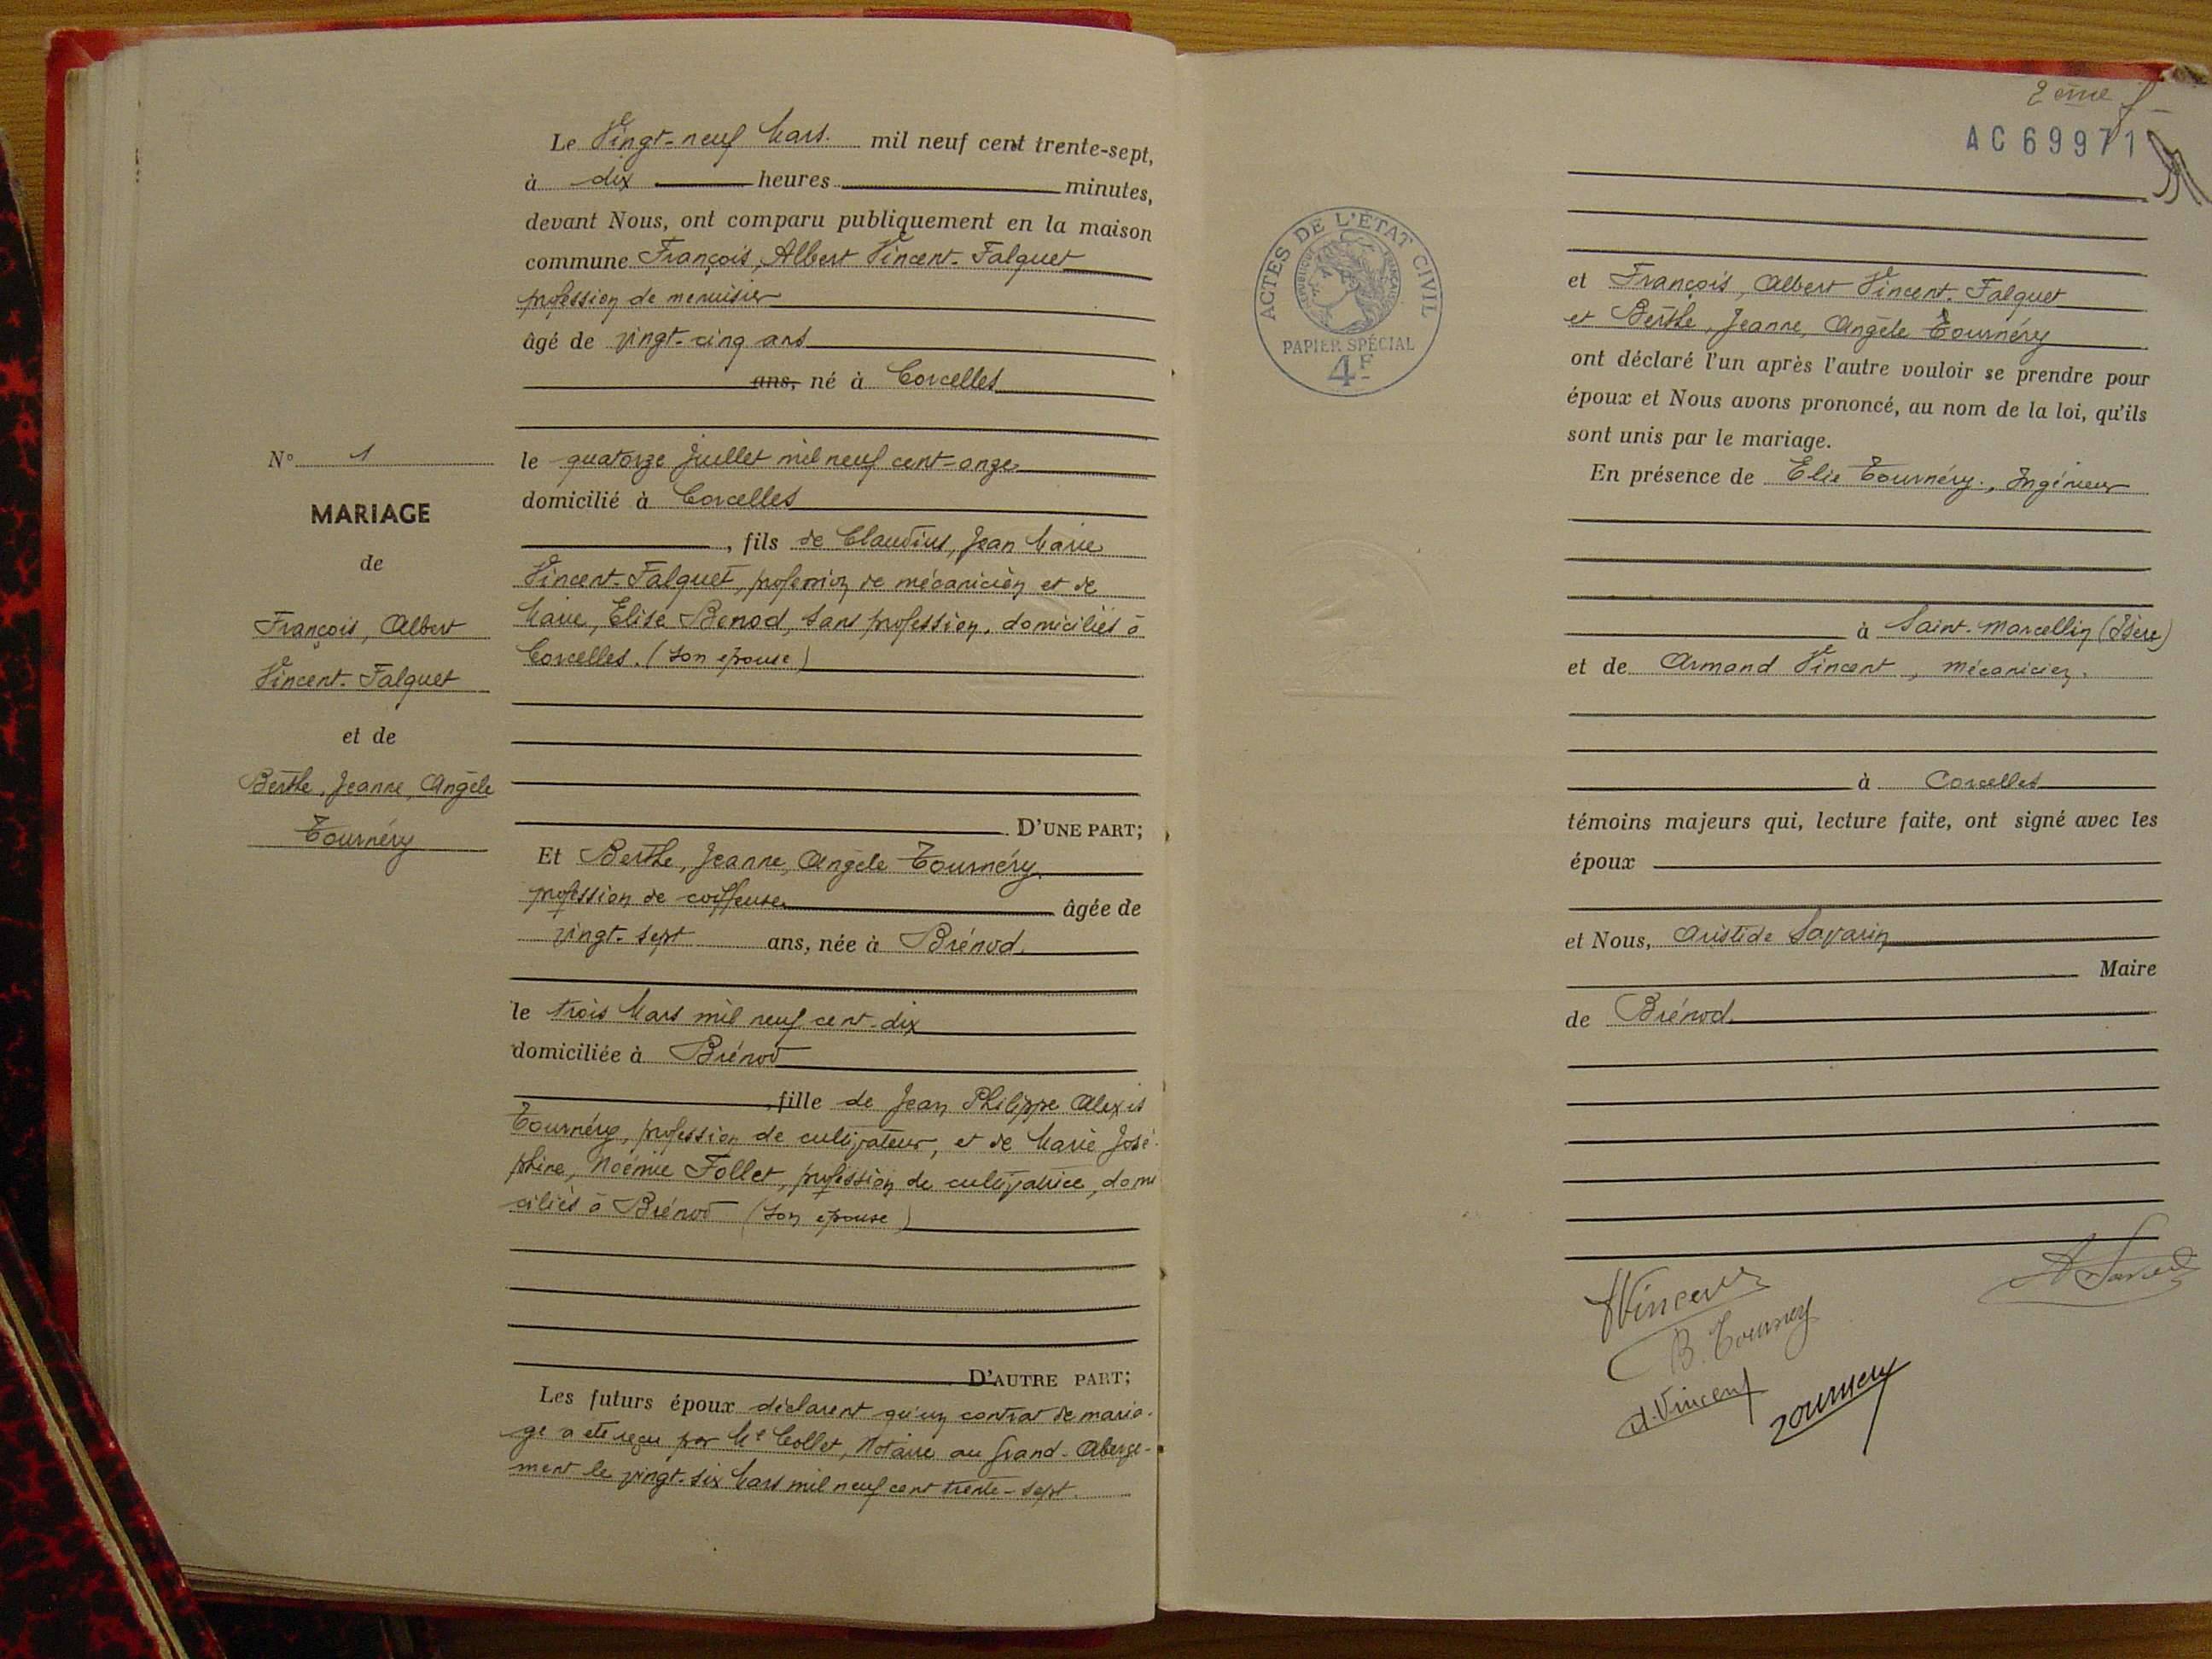 Le Vingt-neuf Mars mil neuf cent trente-sept,
à dix heures minutes,
devant Nous, ont comparu publiquement en la maison
commune François, Albert Vincent-Falquet
profession de menuisier
âgé de vingt-cinq ans
ans, né à Corcelles
N° 1
MARIAGE
de
François, Albert
Vincent-Falquet
et de
Berthe, Jeanne, Angèle
Tournéry
le quatorze Juillet mil neuf cent-onze
domicilié à Corcelles
, fils de Claudius, Jean Marie
Vincent-Falquet, profession de mécanicien et de
Marie, Elise Benod, sans profession, domiciliés à
Corcelles. (son épouse)
D'UNE PART;
Et Berthe, Jeanne, Angèle Tournéry
profession de coiffeuse âgée de
vingt-sept ans, née à Brénod
le trois Mars mil neuf cent-dix
domiciliée à Brénod
, fille de Jean Philippe Alexis
Tournéry, profession de cultivateur, et de Marie José-
phine, Noémie Follet, profession de cultivatrice, domi
ciliés à Brénod (son épouse)
D'AUTRE PART;
Les futurs époux déclarent qu'un contrat de maria-
ge a été reçu par Me Collet, Notaire au Grand-Aberge-
ment le vingt-six Mars mil neuf cent trente-sept.
2ème f
AC 69971
ACTES DE L'ETAT CIVIL
REPUBLIQUE FRANÇAISE
PAPIER SPÉCIAL
4F
et François, Albert Vincent-Falquet
et Berthe, Jeanne, Angèle Tournéry
ont déclaré l'un après l'autre vouloir se prendre pour
époux et Nous avons prononcé, au nom de la loi, qu'ils
sont unis par le mariage.
En présence de Elie Tournéry, Ingénieur
à Saint-Marcellin (Isère)
et de Armand Vincent, mécanicien.
à Corcelles
témoins majeurs qui, lecture faite, ont signé avec les
époux
et Nous, Aristide Savarin
Maire
de Brénod
Vincent
B. Tournery
A. Vincent
Tournery